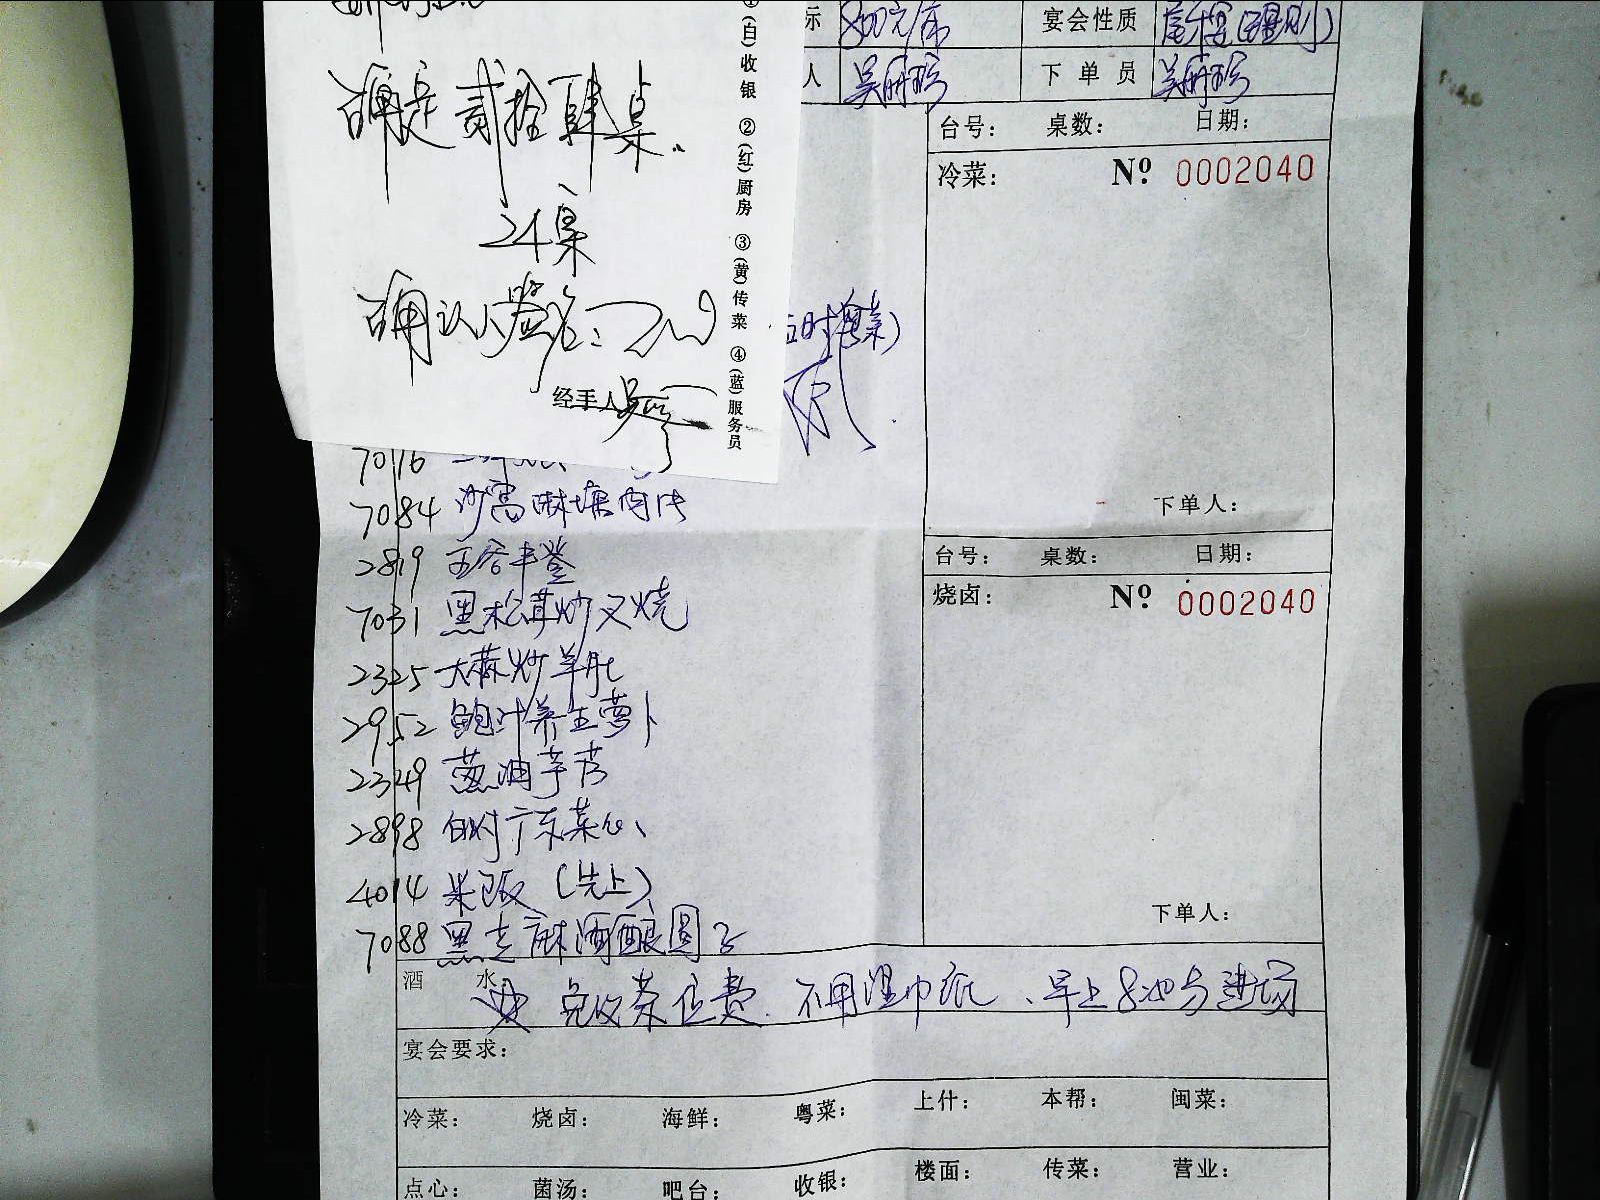 标 800元/席 宴会性质
人 吴丽珍 下单员 吴丽珍
台号： 桌数： 日期：
冷菜： Nº 0002040
①(自)收银 ②(红)厨房 ③(黄)传菜 ④(蓝)服务员
确定贰拾肆桌.
24桌
确认签名：
经手人
应时海菜)
7016
下单人：
7084 沙窝淋塘肉片
2819 五谷丰登
台号： 桌数： 日期：
烧卤： Nº 0002040
7031 黑松茸炒叉烧
2325 大蒜炒羊肚
2952 鲍汁养生萝卜
2349 葱油芋艿
2898 白灼广东菜心
4014 米饭 (先上)
下单人：
7088 黑芝麻酒酿圆子
酒水 免收茶位费. 不用湿巾纸、早上8:00与进场
宴会要求：
冷菜： 烧卤： 海鲜： 粤菜： 上什： 本帮： 闽菜：
点心： 菌汤： 吧台： 收银： 楼面： 传菜： 营业：